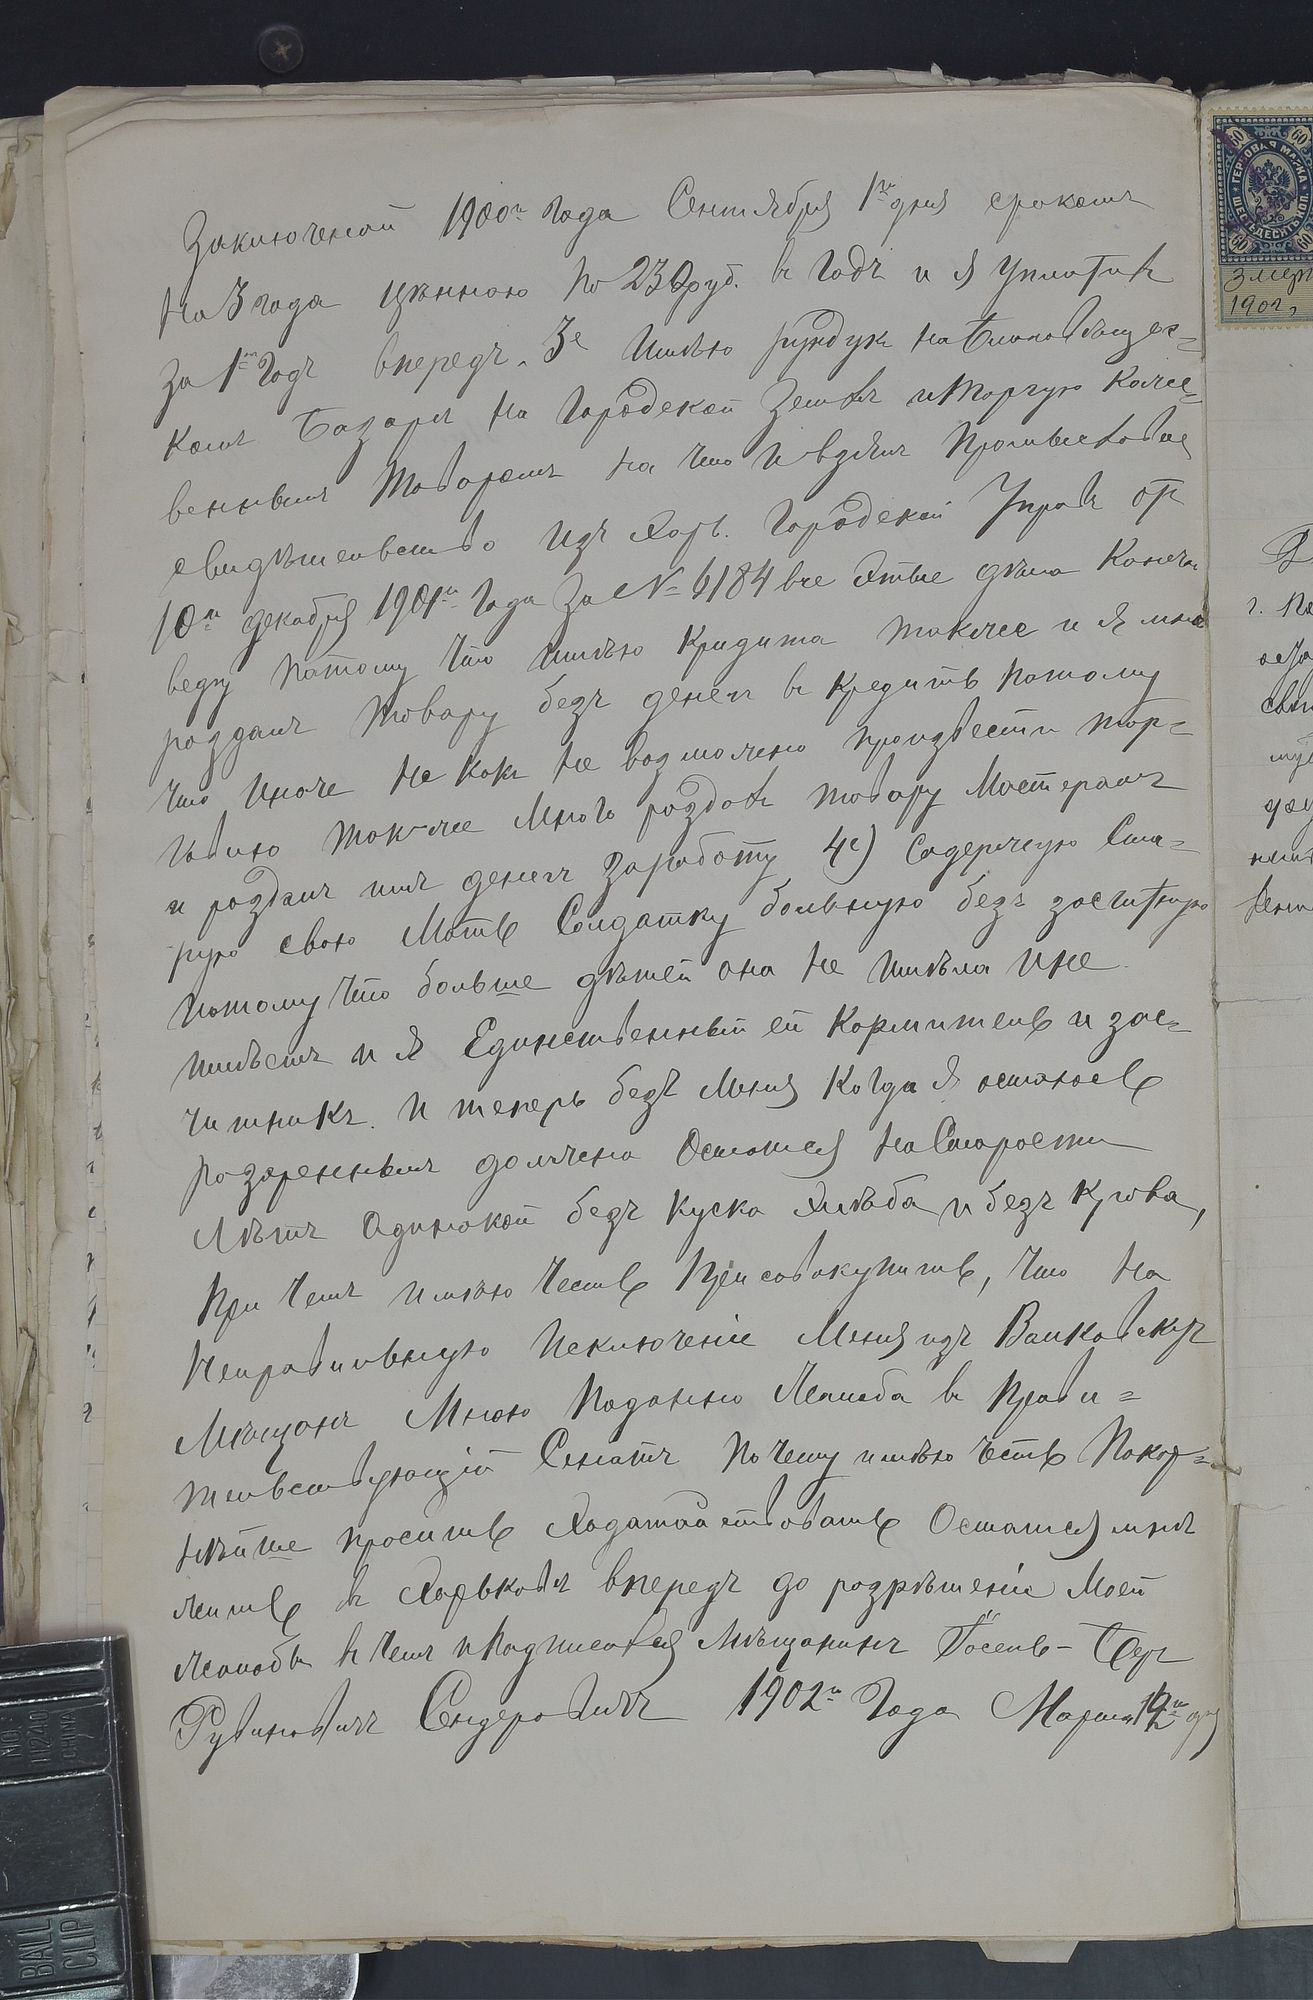 Заключеной 1900го года Сентября 1го дня срокомъ
на 3 года цѣнною по 230 руб. в годъ и я уплотив
за 1й годъ впередъ. 3е Имѣю рундук на Благовѣщес=
комъ базарѣ на городской земли и торгую кожее=
веннымъ товаромъ на что и взялъ промысловые
свидѣтельство изъ Харь. городской Управ от
10го декабря 1901го года за № 6184 все этые дѣла Конечно
веду потому что имѣю кридита также и я много
роздалъ товару безъ денег в кредитъ потому
что иначе не как не возможно произвести тор=
говлю также много роздав товару мастерамъ
и роздалъ имъ денегъ заработу 4е) содержую ста=
рую свою мать солдатку больную безъ зосчитную
потому что больше дѣтей она не имѣла и не
имѣетъ и я Единственный ей кормитель и зос=
читникъ. И теперь безъ меня когда я останось
розореннымъ должена остатся на старости
лѣтъ одинокой безъ куска хлѣба и безъ крова,
При чемъ имѣю честь присовокупить, что на
неправильную исключеніе меня изъ Валковскихъ
мѣщанъ мною подонно жалоба в прави=
тельствующій Сенатъ почему имѣю честь покор=
нѣйше просить ходатайствовать остатся мнѣ
жить в Харьковѣ впередъ до розрѣшеніе моей
жалобы в чемъ и подписался мѣщанинъ Іосель-Бер
Рувиновичъ Сендеровичъ 1902го года Марта 12го дня
ГЕРБОВАЯ МАРКА
ШЕСТЬДЕСЯТЪ КОП.
60 60
60 60
3 мар
1902 г
г. По